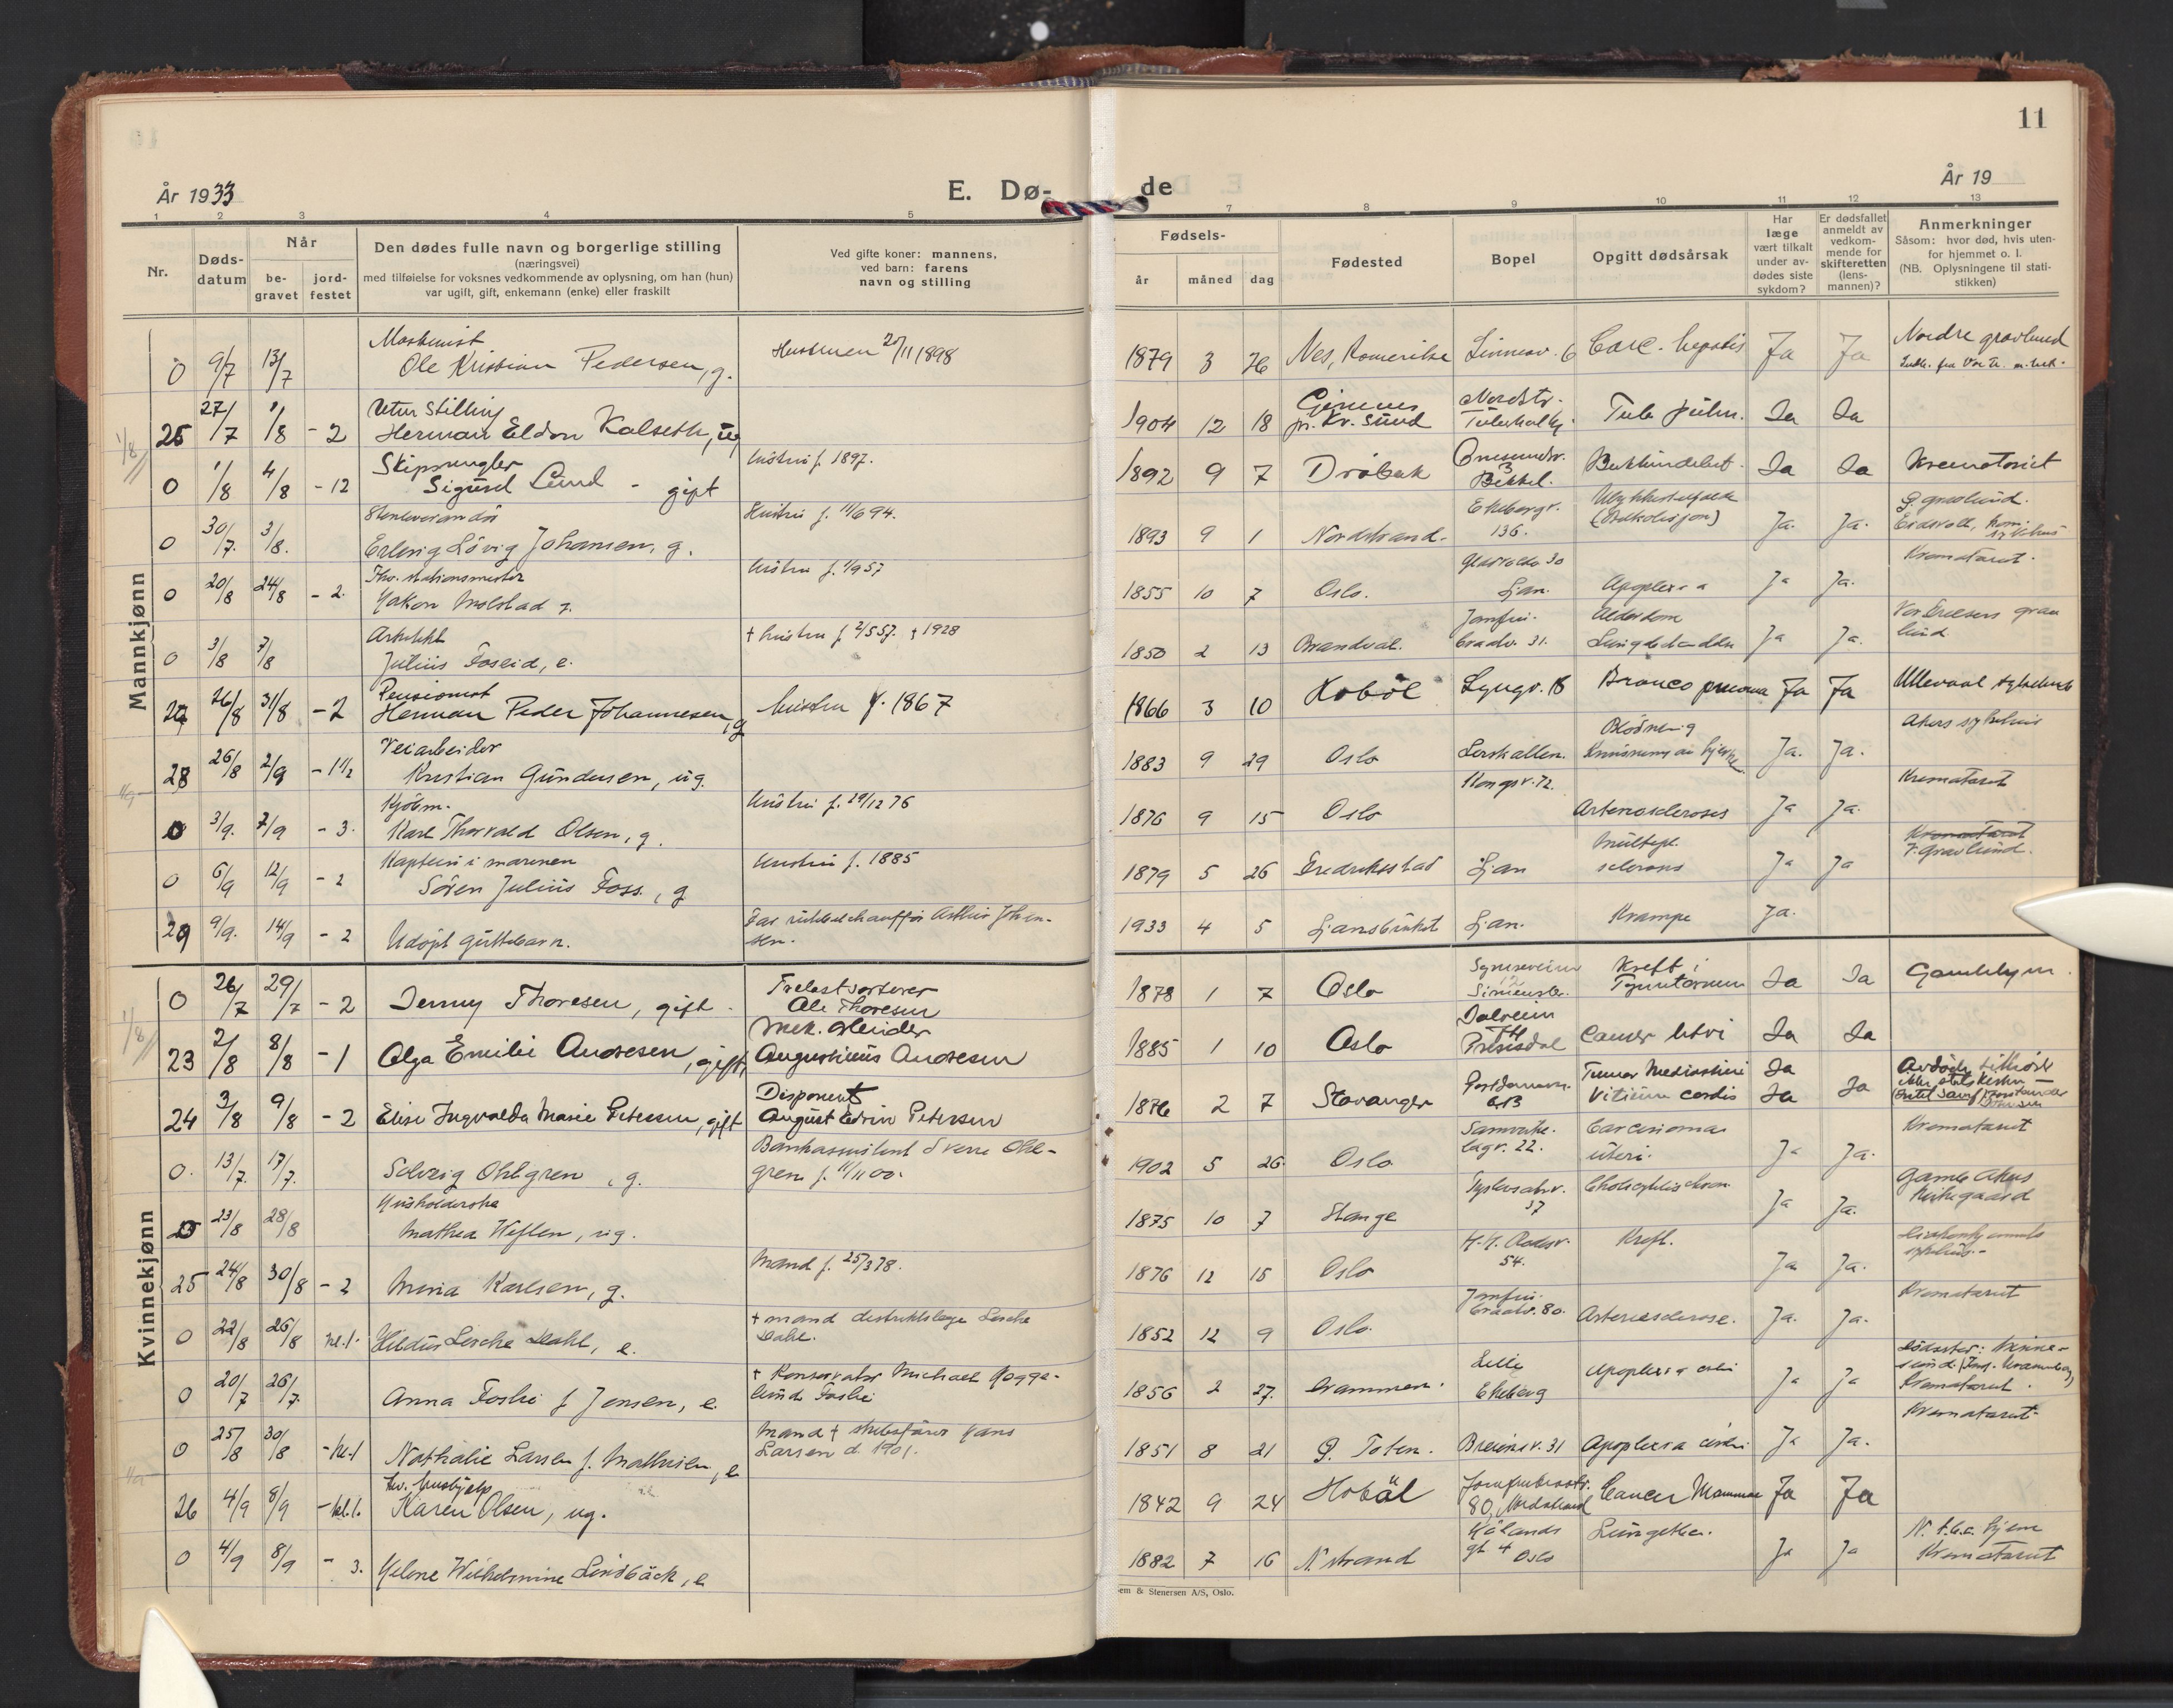 11
År 1933
E. Dø-
de
År 19
1 2 3 4 5
7 8 9 10 11 12 13
Nr.
Døds-
datum
Når
be-
gravet
jord-
festet
Den dødes fulle navn og borgerlige stilling
(næringsvei)
med tilføielse for voksnes vedkommende av oplysning, om han (hun)
var ugift, gift, enkemann (enke) eller fraskilt
Ved gifte koner: mannens,
ved barn: farens
navn og stilling
Fødsels-
år måned dag
Fødested
Bopel
Opgitt dødsårsak
Har
læge
vært tilkalt
under av-
dødes siste
sykdom?
Er dødsfallet
anmeldt av
vedkom-
mende for
skifteretten
(lens-
mannen)?
Anmerkninger
Såsom: hvor død, hvis uten-
for hjemmet o. l.
(NB. Oplysningene til stati-
stikken)
Mannkjønn
Maskinist
0 9/7 13/7 Ole Kristian Pedersen, g. Hustruen 27/11 1898
1879 3 26 Nes, Romerike Linnesv. 6 Carc. hepatis Ja Ja Nordre gravlund
Uten stilling
25 27/7 1/8 - 2 Herman Eldon Kalseth, ug
1904 12 18 pr. Kr. Sund Tub. pulm. Ja Ja
Skipsmegler
0 1/8 4/8 - 12 Sigurd Lund - gift Hustru f. 1897.
1892 9 7 Drøbak Bekkel. Ja Ja Krematoriet
0 30/7. 3/8. Erling Lövig Johansen, g. Hustru f. 11/6 94.
1893 9 1 Nordstrand. Ekebergv. 136. Ulykkestilfelde Ja. Ja. Eidsvoll
Fhv. stationsmester
0 20/8 24/8 - 2. Hakon Molstad g. Hustru f. 1/9 57
1855 10 7 Oslo. Ljan. Apoplexia Ja Ja. Krematoriet.
Arkitekt
0 3/8 7/8 Julius Foseid, e. + hustru f. 2/5 57. + 1928
1850 2 13 Brandval. Jomfru-
bratv. 31. Alderdom Ja Ja. Vor Frelsers grav
lund
Pensionist
27 26/8 31/8 - 2 Herman Peder Johannesen, g Hustru f. 1867
1866 3 10 Hobøl Lyngv. 18 Bronco pneumonia Ja Ja Ullevaal sykehus
Veiarbeider
28 26/8 2/9 - 1 1/2 Kristian Gundersen, ug.
1883 9 29 Oslo Ja. Ja. Akers sykehus
Kjöbm.
0 3/9. 7/9 - 3. Karl Thorvald Olsen, g. Hustru f. 29/12 76
1876 9 15 Oslo Kongsv. 72. Arteriosclerosis Ja Ja. Krematoriet
Kaptein i marinen
0 6/9 12/9 - 2 Sören Julius Foss., g Hustru f. 1885
1879 5 26 Fredrikstad Ljan Multipl.
sclerosis Ja Ja Krematoriet
V. gravlund.
29 9/9. 14/9 - 2 Udöpt guttebarn. Far rutebilchauffør Arthur Johan-
sen.
1933 4 5 Ljansbruket Ljan. Krampe Ja.
Kvinnekjønn
0 26/7 29/7 - 2 Jenny Thoresen, gift. Trelastsorterer
Ole Thoresen
1878 1 7 Oslo Kreft i Ja Ja
23 2/8 8/8 - 1 Olga Emilie Andresen, gift, Mek. Arbeider
Augustinus Andresen
1885 1 10 Oslo Cancer uteri Ja Ja
24 3/8 9/8 - 2 Elise Ingvalda Marie Petersen, gift Disponent
August Edvin Petersen
1876 2 7 Stavanger Tumor Mediastini Ja
Vitium cordis Ja Ja
0. 13/7. 17/7. Solveig Ohlgren, g. Bankassistent Sverre Ohl-
gren f. 11/11 00.
1902 5 26. Oslo Carcinoma
uteri. Ja Ja. Krematoriet
Husholderske
0 23/8 28/8 Mathea Heflen, ug.
1875 10 7 Stange 37 Ja Ja. Gamle Akers
Kirkegaard
25 24/8 30/8 - 2 Mina Karlsen, g. Mand f. 25/3 78.
1876 12 15 Oslo 54. Kreft. Ja Ja.
0 22/8 26/8 kl. 1. Hildur Lerche Dahl, e. + mand distriktslæge Lerche
Dahl.
1852 12 9 Oslo. Jomfru-
bratv. 80. Arteriesclerose. Ja. Ja. Krematoriet
0 20/7 26/7. Anna Foslie f. Jensen, e. + Konservator Michael Hogge-
lund Foslie
1856 2 27. Drammen. Lille
Ekeberg Apoplexia cerebri Ja Ja Krematoriet.
0 25/8 30/8 - kl. 1 Nathalie Larsen f. Mathisen, e. Mand + skibsfører Hans
Larsen d. 1901.
1851 8 21 Ø. Toten. Breiensv. 31 Apoplexia cerebri Ja Ja. Krematoriet.
26 4/9 8/9 - kl. 1. Karen Olsen, ug.
1842 9 24 Hobøl 80, Nordstrand Cancer Mammae Ja Ja
0 4/9 8/9 - 3. Helene Wilhelmine Lindbäck, e
1882 7 16 N. strand gt. 4 Oslo Ja Ja N. t.b.c. hjem
Krematoriet
em & Stenersen A/S, Oslo.